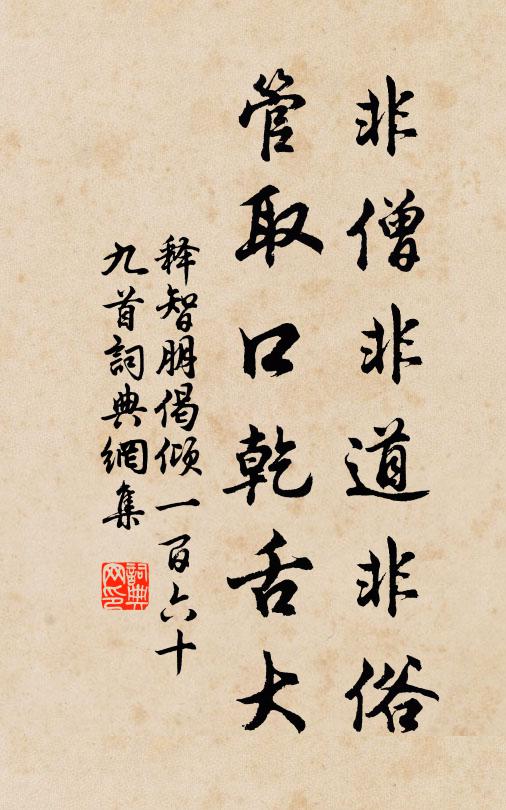 非僧非道非俗
管取口乾舌大
释智朋偈倾一百六十
九首詞典網集
詞典网印